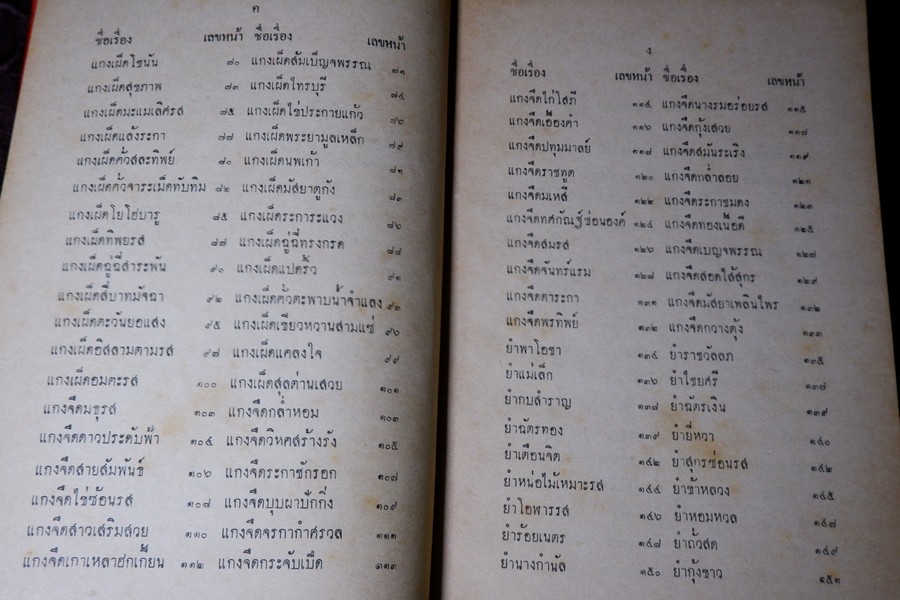 ค
ชื่อเรื่อง เลขหน้า ชื่อเรื่อง เลขหน้า
แกงเผ็ดโซนัน ๗๐ แกงเผ็ดสัมเบ็ญจพรรณ ๗๑
แกงเผ็ดสุขภาพ ๗๓ แกงเผ็ดไทรบุรี ๗๔
แกงเผ็ดมะแมเลิศรส ๗๕ แกงเผ็ดไข่ประกายแก้ว ๗๖
แกงเผ็ดแสังระกา ๗๗ แกงเผ็ดพระยามูลเหล็ก ๗๙
แกงเผ็ดคั่วสละทิพย์ ๘๐ แกงเผ็ดนพเก้า ๘๑
แกงเผ็ดคั่วจาระเม็ดทับทิม ๘๒ แกงเผ็ดมัสยาตูกัง ๘๓
แกงเผ็ดโยโฮ่บารู ๘๕ แกงเผ็ดระการะแวง ๘๖
แกงเผ็ดทิพยรส ๘๗ แกงเผ็ดฉู่ฉี่ทรงกรด ๘๘
แกงเผ็ดฉู่ฉี่สำระพัน ๙๐ แกงเผ็ดแปดริ้ว ๙๑
แกงเผ็ดสี่บาทมัจฉา ๙๒ แกงเผ็ดคั่วตะพาบน้ำจำแลง ๙๓
แกงเผ็ดตะวันยอแสง ๙๕ แกงเผ็ดเขียวหวานสามแซ่ ๙๖
แกงเผ็ดอิสลามตามรส ๙๗ แกงเผ็ดแคลงใจ ๙๙
แกงเผ็ดอมตะรส ๑๐๐ แกงเผ็ดสุลต่านเสวย ๑๐๑
แกงจืดมธุรส ๑๐๓ แกงจืดกล่ำหอม ๑๐๓
แกงจืดดาวประดับฟ้า ๑๐๔ แกงจืดวิหคสร้างรัง ๑๐๕
แกงจืดสายสัมพันธ์ ๑๐๖ แกงจืดระกาชักรอก ๑๐๗
แกงจืดไข่ซ้อนรส ๑๐๘ แกงจืดบุบผาปักกิ่ง ๑๐๙
แกงจืดสาวเสริมสวย ๑๑๐ แกงจืดจรกากำศรวล ๑๑๑
แกงจืดเกาเหลาฮกเกี้ยน ๑๑๒ แกงจืดกระจับเป็ด ๑๑๓
ง
ชื่อเรื่อง เลขหน้า ชื่อเรื่อง เลขหน้า
แกงจืดไก่ไสภี ๑๑๔ แกงจืดนางรมอร่อยรส ๑๑๕
แกงจืดเอื้องคำ ๑๑๖ แกงจืดกุ้งเสวย ๑๑๗
แกงจืดปทุมมาลย์ ๑๑๘ แกงจืดสมันระเริง ๑๑๙
แกงจืดราชทูต ๑๒๐ แกงจืดกล่ำลอย ๑๒๑
แกงจืดมเหสี ๑๒๒ แกงจืดระกาชมดง ๑๒๓
แกงจืดทศกัณฐ์ซ่อนองค์ ๑๒๔ แกงจืดทองเนื้อดี ๑๒๕
แกงจืดสมรส ๑๒๖ แกงจืดเบญจพรรณ ๑๒๗
แกงจืดจันทร์แรม ๑๒๘ แกงจืดสอดไส้สุกร ๑๒๙
แกงจืดดาระกา ๑๓๑ แกงจืดมัสยาเพลินไพร ๑๓๒
แกงจืดพรทิพย์ ๑๓๒ แกงจืดกวางตุ้ง ๑๓๓
ยำพาโอชา ๑๓๔ ยำราชวัลลภ ๑๓๕
ยำแม่เล็ก ๑๓๖ ยำไชยศรี ๑๓๗
ยำกบสำราญ ๑๓๗ ยำฉัตรเงิน ๑๓๙
ยำฉัตรทอง ๑๓๙ ยำยี่หวา ๑๔๐
ยำเตือนจิต ๑๔๒ ยำสุกรซ่อนรส ๑๔๒
ยำหน่อไม้เหมาะรส ๑๔๔ ยำข้าหลวง ๑๔๕
ยำโอพารรส ๑๔๖ ยำหอมหวล ๑๔๗
ยำร้อยเนตร ๑๔๘ ยำถั่วสด ๑๔๙
ยำนางกำนัล ๑๕๐ ยำกุ้งขาว ๑๕๑